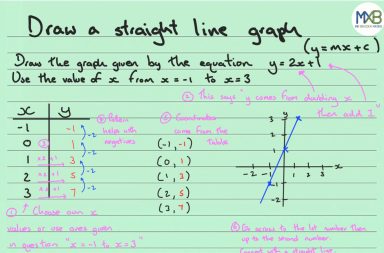 MXB
Draw a straight line graph
(y=mx+c)
Draw the graph given by the equation y=2x+1
Use the value of x from x=-1 to x=3
② This says "y comes from dividing x
then add 1"
x y
-1 -1
0 1
1 3
2 5
3 7
-2
-2
-2
-2
③ Pattern
helps with
negatives
④ Coordinates
come from the
tables
(-1,-1)
(0,1)
(1,3)
(2,5)
(3,7)
3
2
1
-2 -1 1 2 3 x
-1
-2
① Choose own x
values or use ones given
in question "x=-1 to x=3"
Go across to the 1st number then
up to the second number.
Connect with a straight line